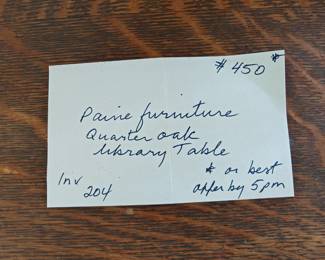 # 450 *
Paine furniture
Quarter oak
library Table
* or best
Inv
offer by 5pm
204